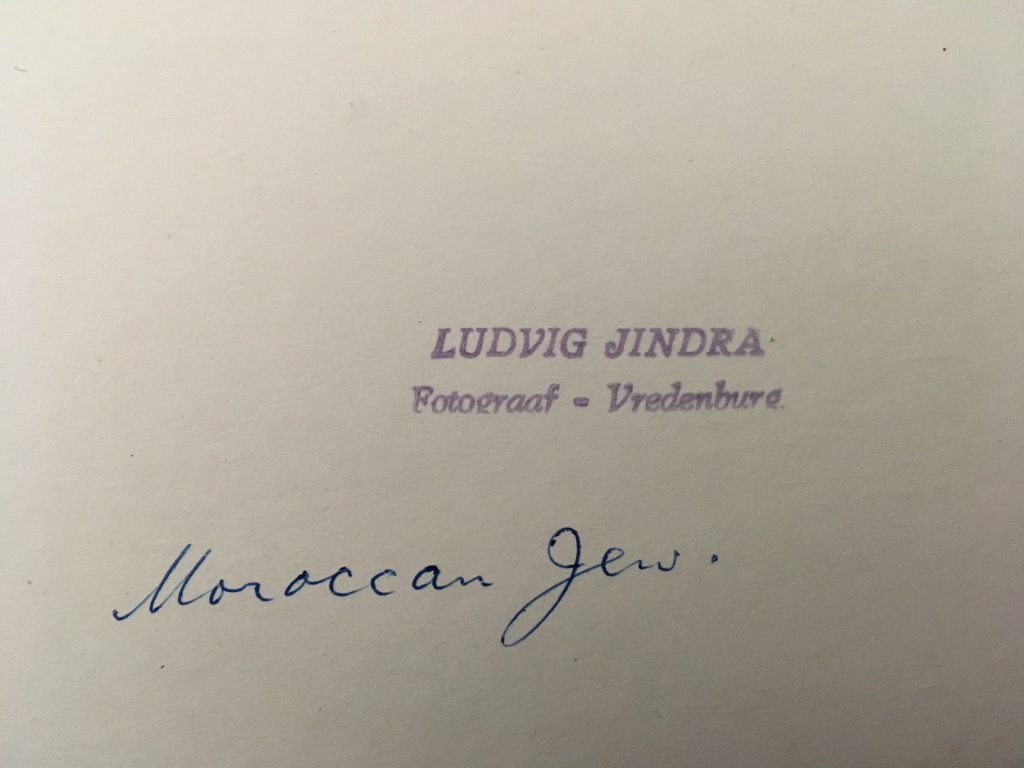 LUDVIG JINDRA
Fotograaf - Vredenburg.
Moroccan Jew.